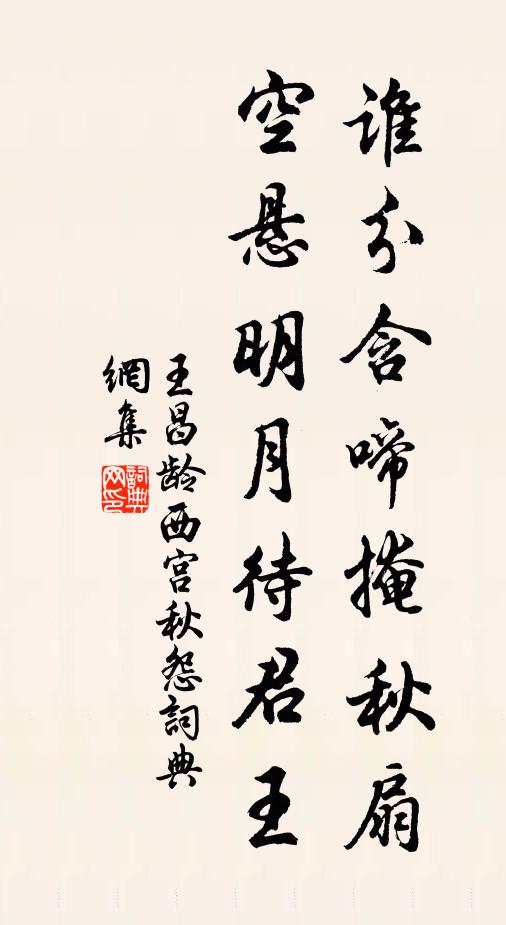 谁分含啼掩秋扇
空悬明月待君王
王昌龄西宫秋怨词典
網集
詞典
网印